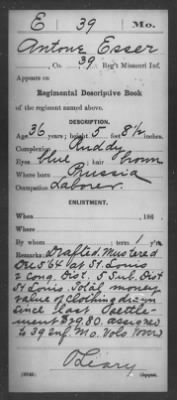 E 39 Mo.
Antone Esser
, Co. 39 Reg't Missouri Inf.
Appears on
Regimental Descriptive Book
of the regiment named above.
DESCRIPTION.
Age 36 years; height 5 feet 8½ inches.
Complexion Ruddy
Eyes blue; hair Brown
Where born Prussia
Occupation Laborer
ENLISTMENT.
When , 186 .
Where
By whom ; term 1 y'rs.
Remarks: Drafted. Mustered
Dec 5 '64 at St. Louis
2 Cong. Dist. 5 Sub. Dist
St Louis. Total money
value of clothing drawn
since last settle-
ment $29.80. assigned
to 39 Inf. Mo. Vols
O'Leary
Copyist.